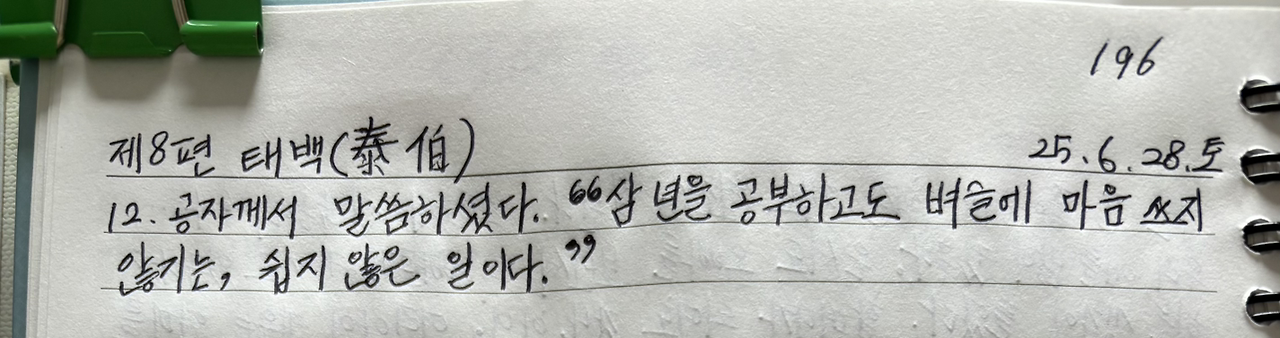 196
제8편 태백(泰伯) 25.6.28.토
12. 공자께서 말씀하셨다. “삼 년을 공부하고도 벼슬에 마음 쓰지
않기는, 쉽지 않은 일이다.”